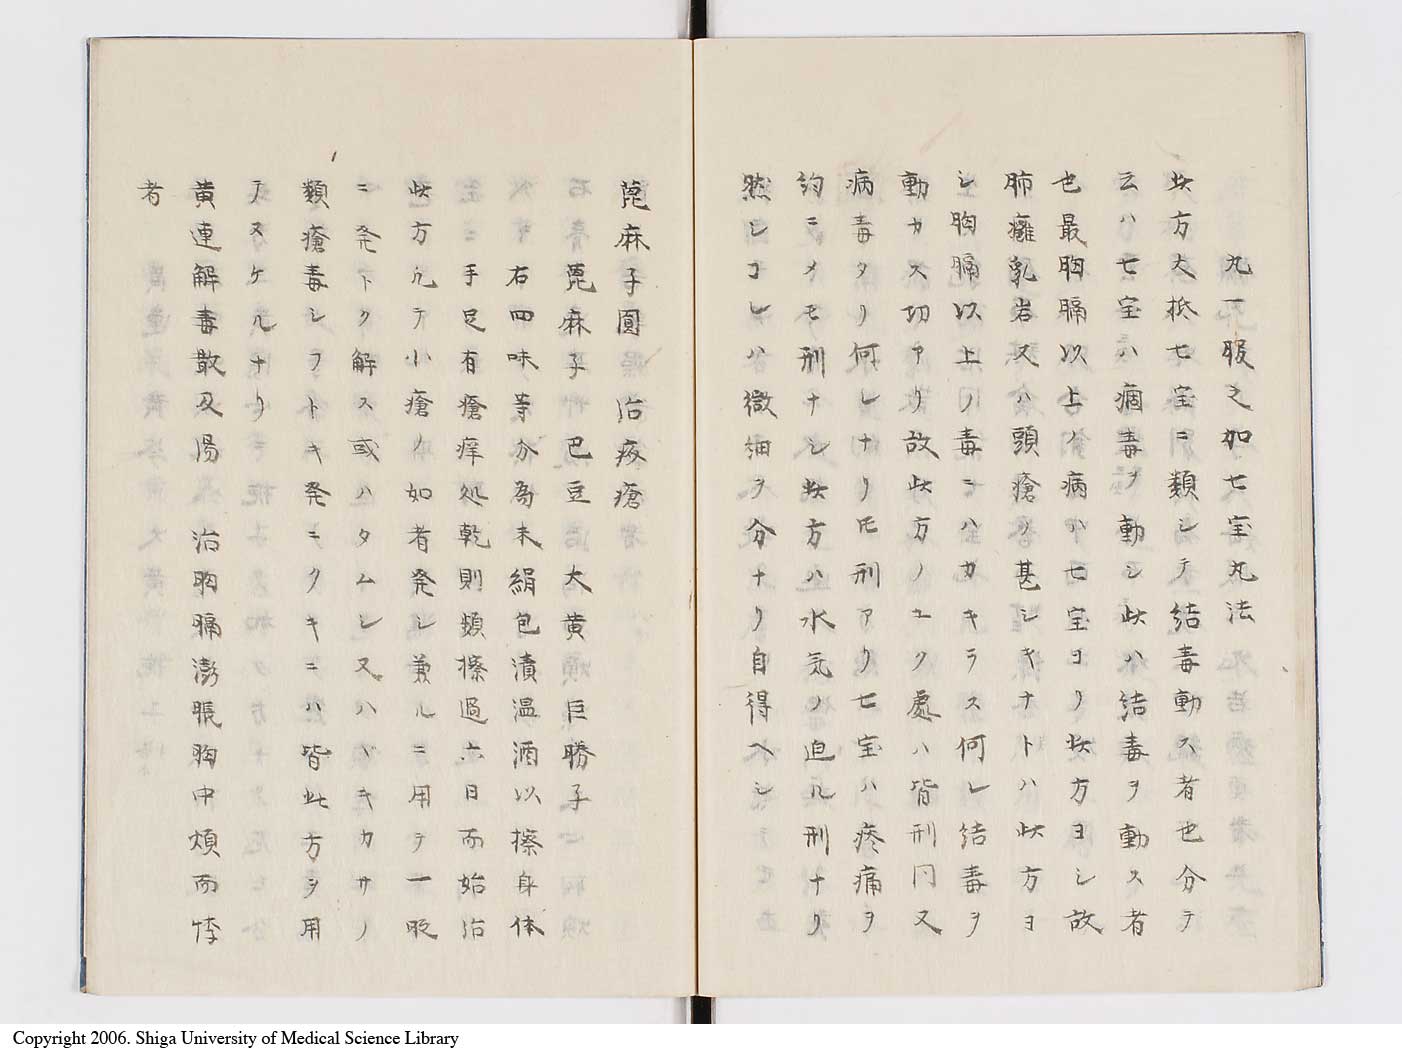 丸一服之如七宝丸法
此方大抵七宝ニ類シテ結毒動ス者也分テ
云ハ七宝ハ痼毒ヲ動シ此ハ結毒ヲ動ス者
也最胸膈以上ノ病ハ七宝ヨリ此方ヨシ故
肺癰乳岩又ハ頭瘡ノ甚シキナトハ此方ヨ
シ胸膈以上ノ毒ニハカキラス何レ結毒ヲ
動カス切アリ故此方ノユク處ハ皆刑冂又
病毒タリ何レナリ㐧刑アリ七宝ハ疼痛ヲ
約ニメモ刑ナシ此方ハ水気ノ迫ル刑ナリ
然シコレハ微細ヲ分ナリ自得ヘシ
蓖麻子圓 治疥瘡
蓖麻子 巴豆 大黄 巨勝子
右四味等分為末絹包漬温酒以擦身体
手足有瘡痒処乾則頻擦過六日而始治
此方凢テ小瘡ノ如者発シ兼ルニ用テ一眅
ニ発トク解ス或ハタムシ又ハハキカサノ
類瘡毒シラトキ発ニクキニハ皆此方ヲ用
テスケルナリ
黄連解毒散及湯 治胸膈澎脹胸中煩而悸
者
Copyright 2006. Shiga University of Medical Science Library